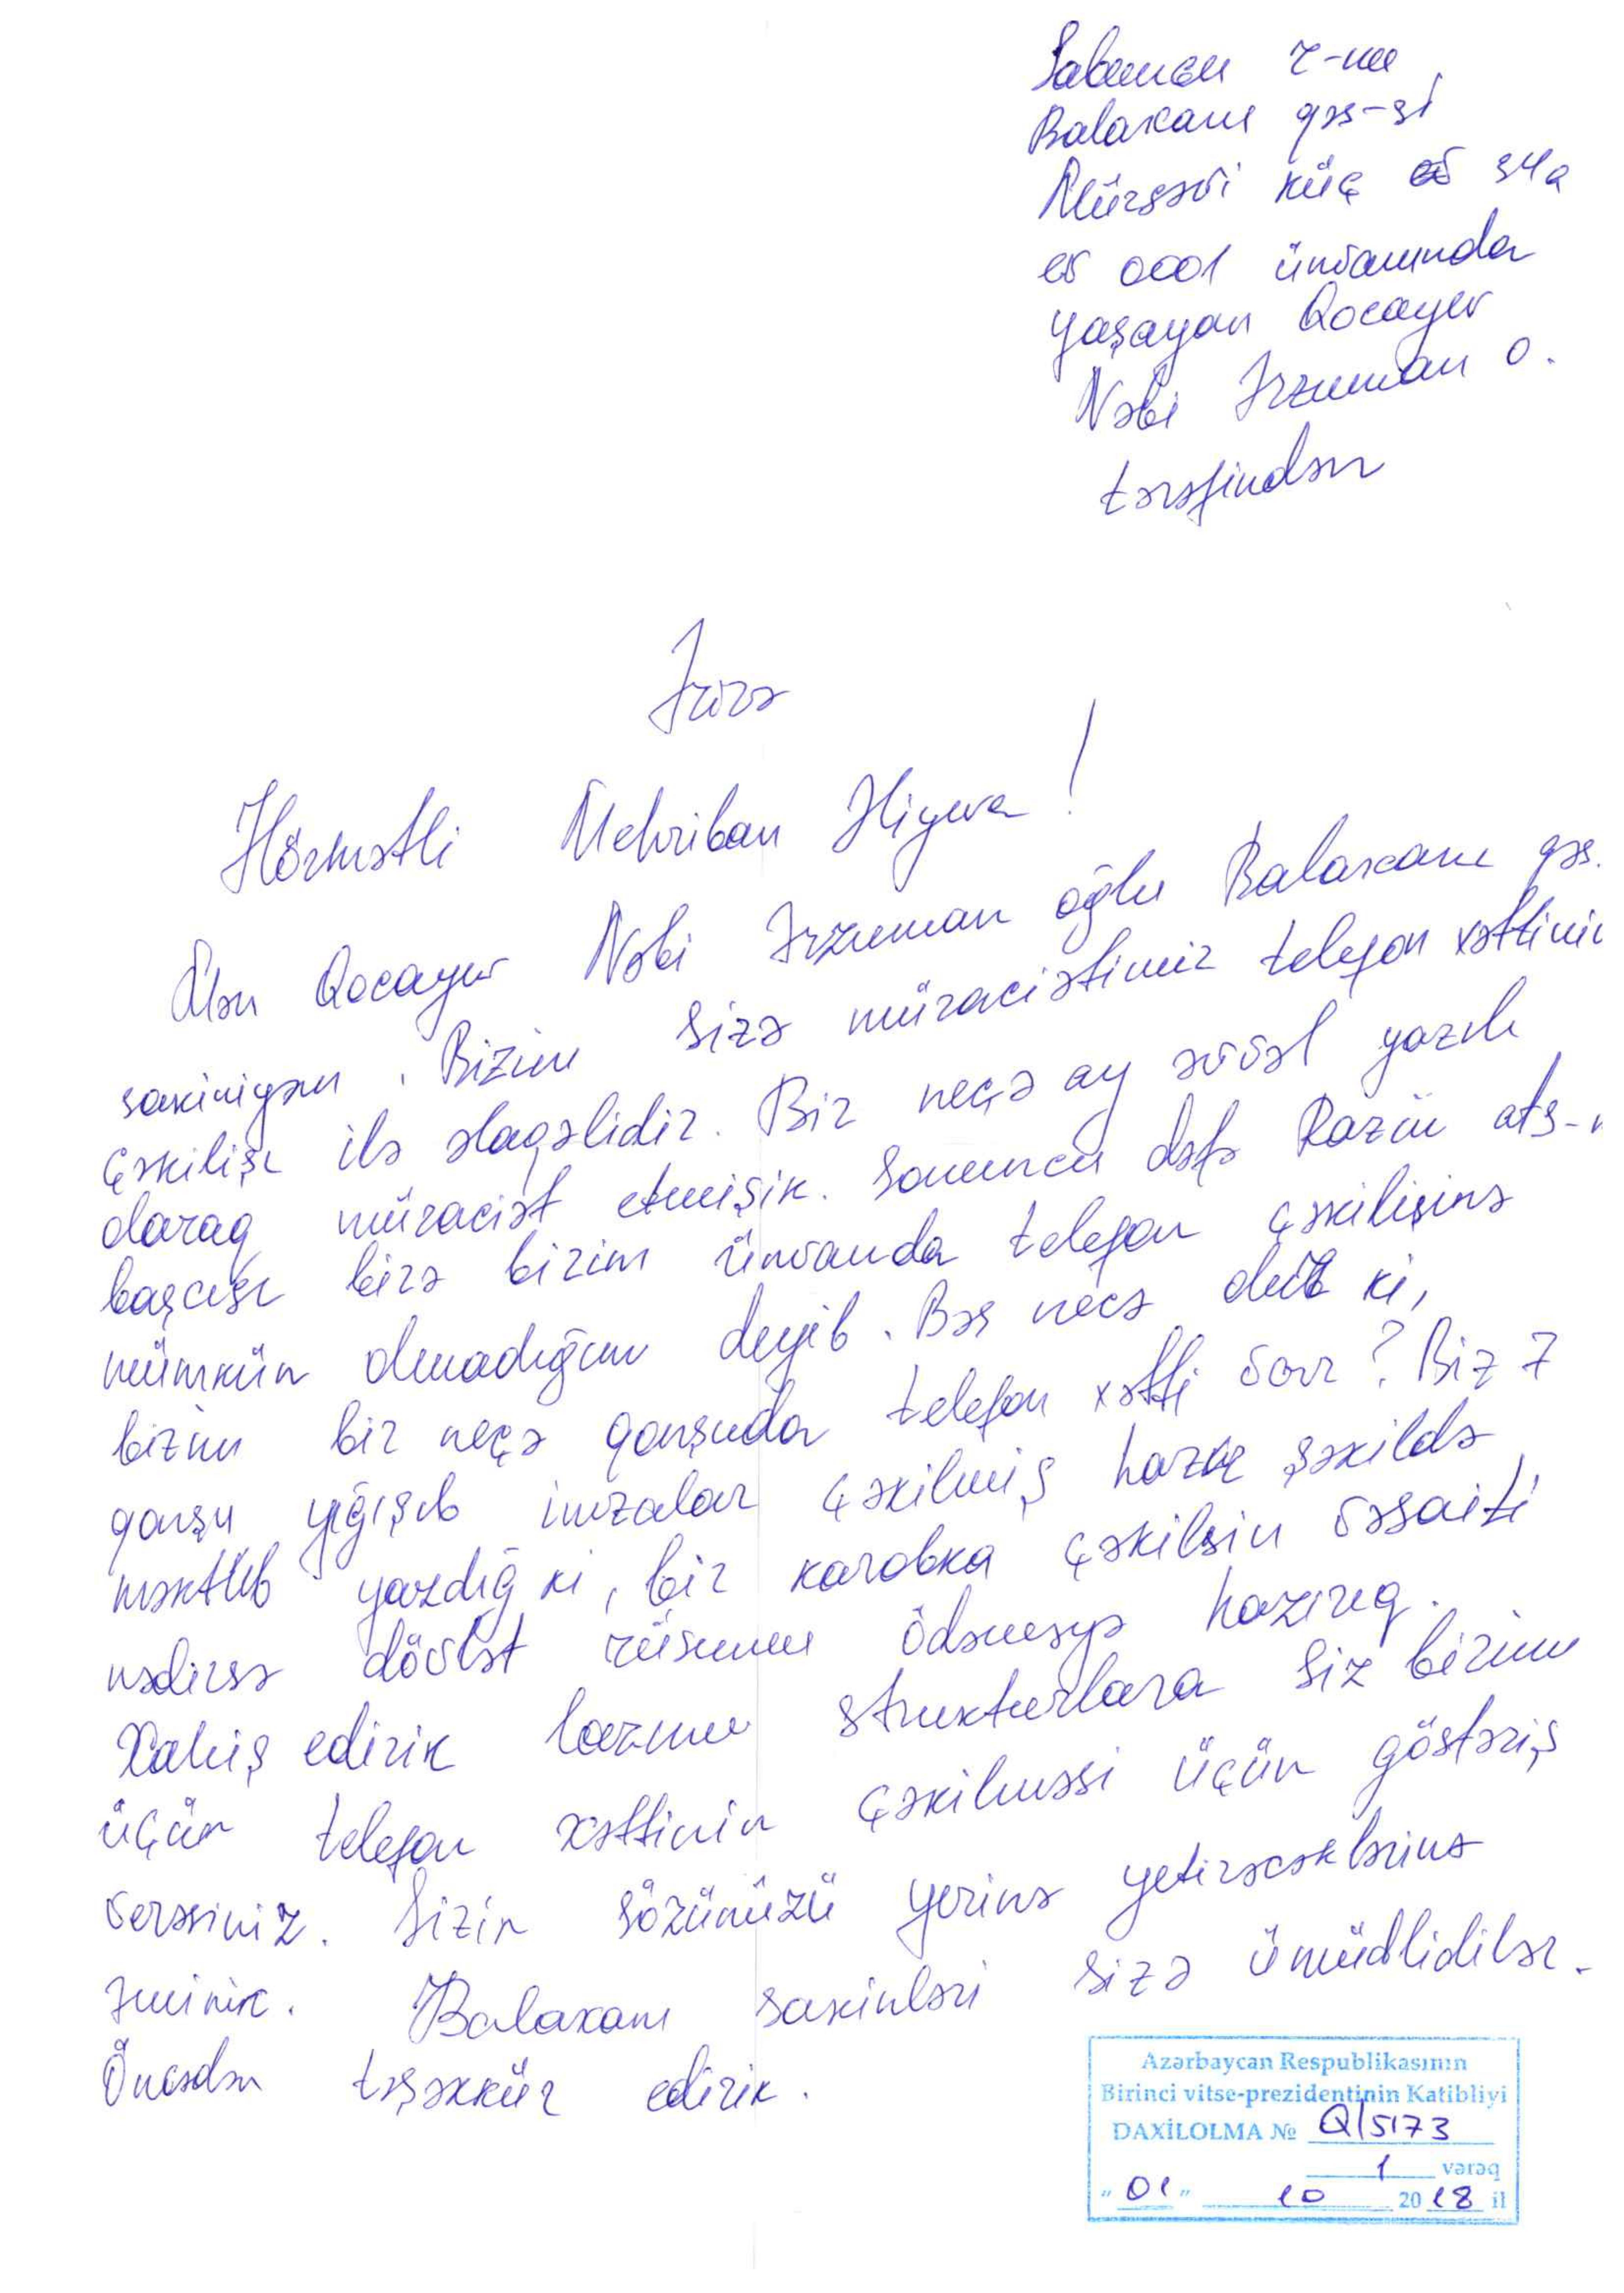 Sabunçu r-nu
Balaxanı qəs-si
Mürşəvi küç ev 34a
ev 0001 ünvanında
yaşayan Qocayev
Nəbi Ərzuman o.
tərəfindən
Ərizə
Hörmətli Mehriban Əliyeva!
Mən Qocayev Nəbi Ərzuman oğlu Balaxanı qəs.
sakiniyəm. Bizim Sizə müraciətimiz telefon xəttinin
çəkilişi ilə əlaqəlidir. Bir neçə ay əvvəl yazılı
olaraq müraciət etmişik. Sonuncu dəfə Razin ats-n
başçısı bizə bizim ünvanda telefon çəkilişinə
mümkün olmadığını deyib. Bəs necə olub ki,
bizim bir neçə qonşuda telefon xətti var? Biz 7
qonşu yığışıb imzalar çəkilmiş hazır şəkildə
məktub yazdığ ki, bir karobka çəkilsin vəsaiti
nədirsə dövlət rüsumu ödəməyə hazırıq.
Xahiş edirik lazımı strukturlara Siz bizim
üçün telefon xəttinin çəkilməsi üçün göstəriş
verəsiniz. Sizin sözünüzü yerinə yetirəcəklərinə
əminik. Balaxanı sakinləri sizə ümüdlidilər.
Öncədən təşəkkür edirik.
Azərbaycan Respublikasının
Birinci vitse-prezidentinin Katibliyi
DAXİLOLMA № Q/5173
1 vərəq
"01" 10 2018 il